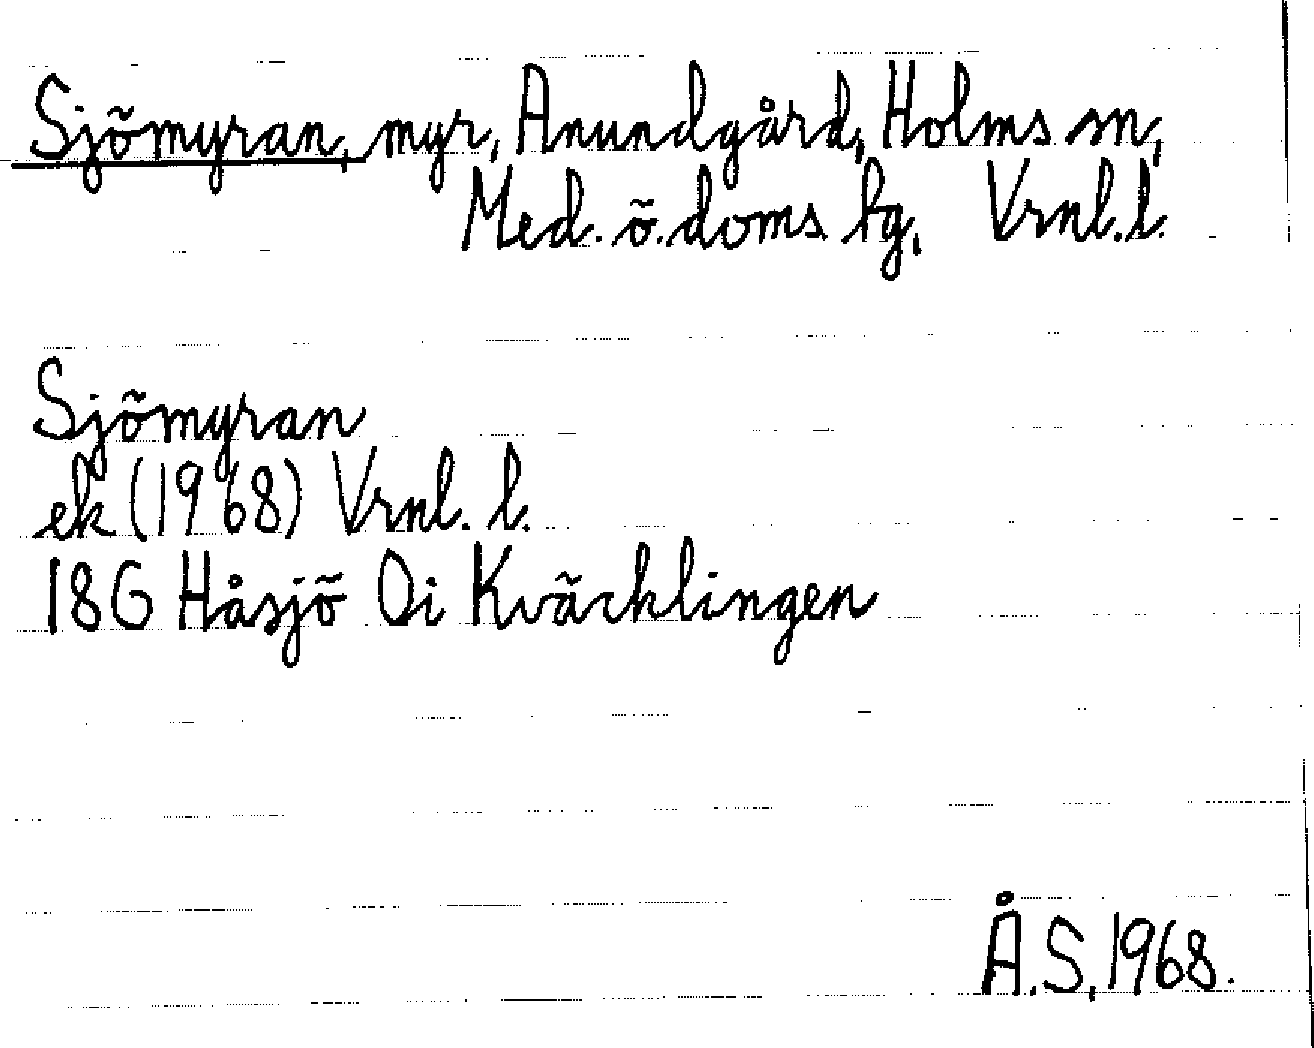 Sjömyran, myr, Anundgård, Holms sn,
Med. ö. doms. hg, Vrnl. l.
Sjömyran
ek (1968) Vrnl. l.
18G Håsjö Oi Kväcklingen
Å.S, 1968.